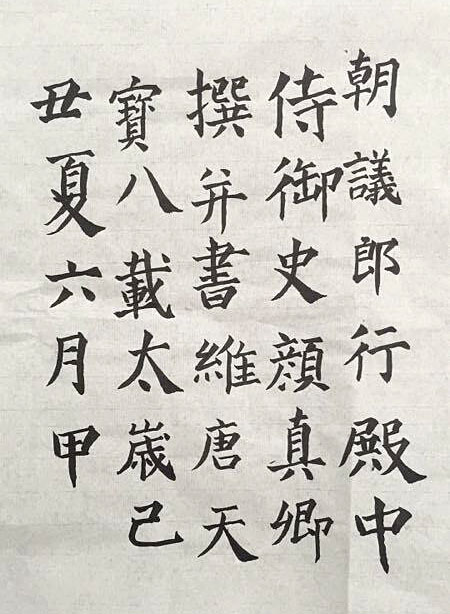 朝議郎行殿中
侍御史顏真卿
撰并書維唐天
寶八載太歲己
丑夏六月甲